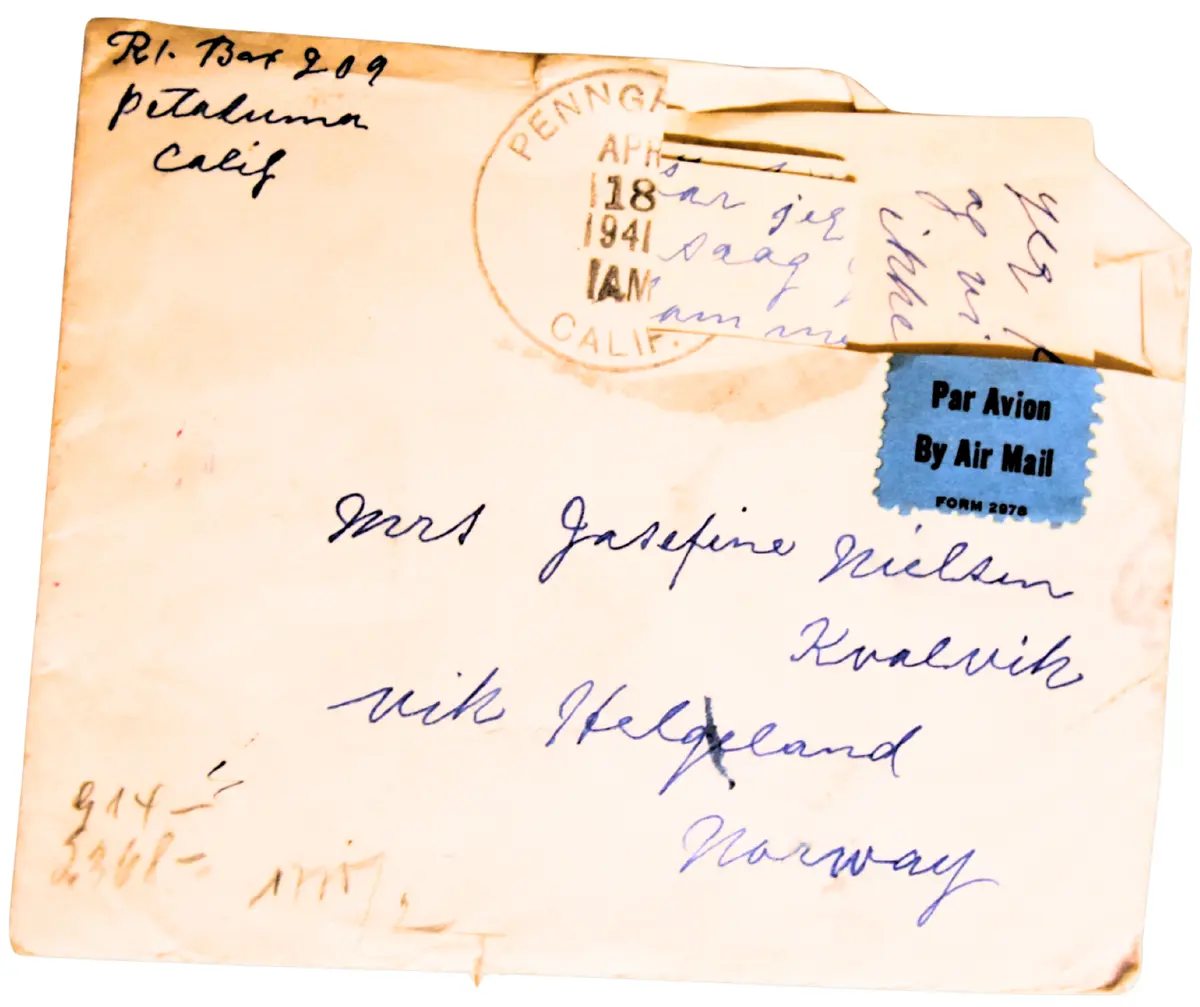 Rt. Box 209
Petaluma
Calif
PENNGR
APR
18
1941
1AM
CALIF.
jeg
saag
am
jeg
og vi
ikke
Par Avion
By Air Mail
FORM 2978
Mrs Josefine Nielsen
Kvalvik
vik Helgeland
Norway
914-